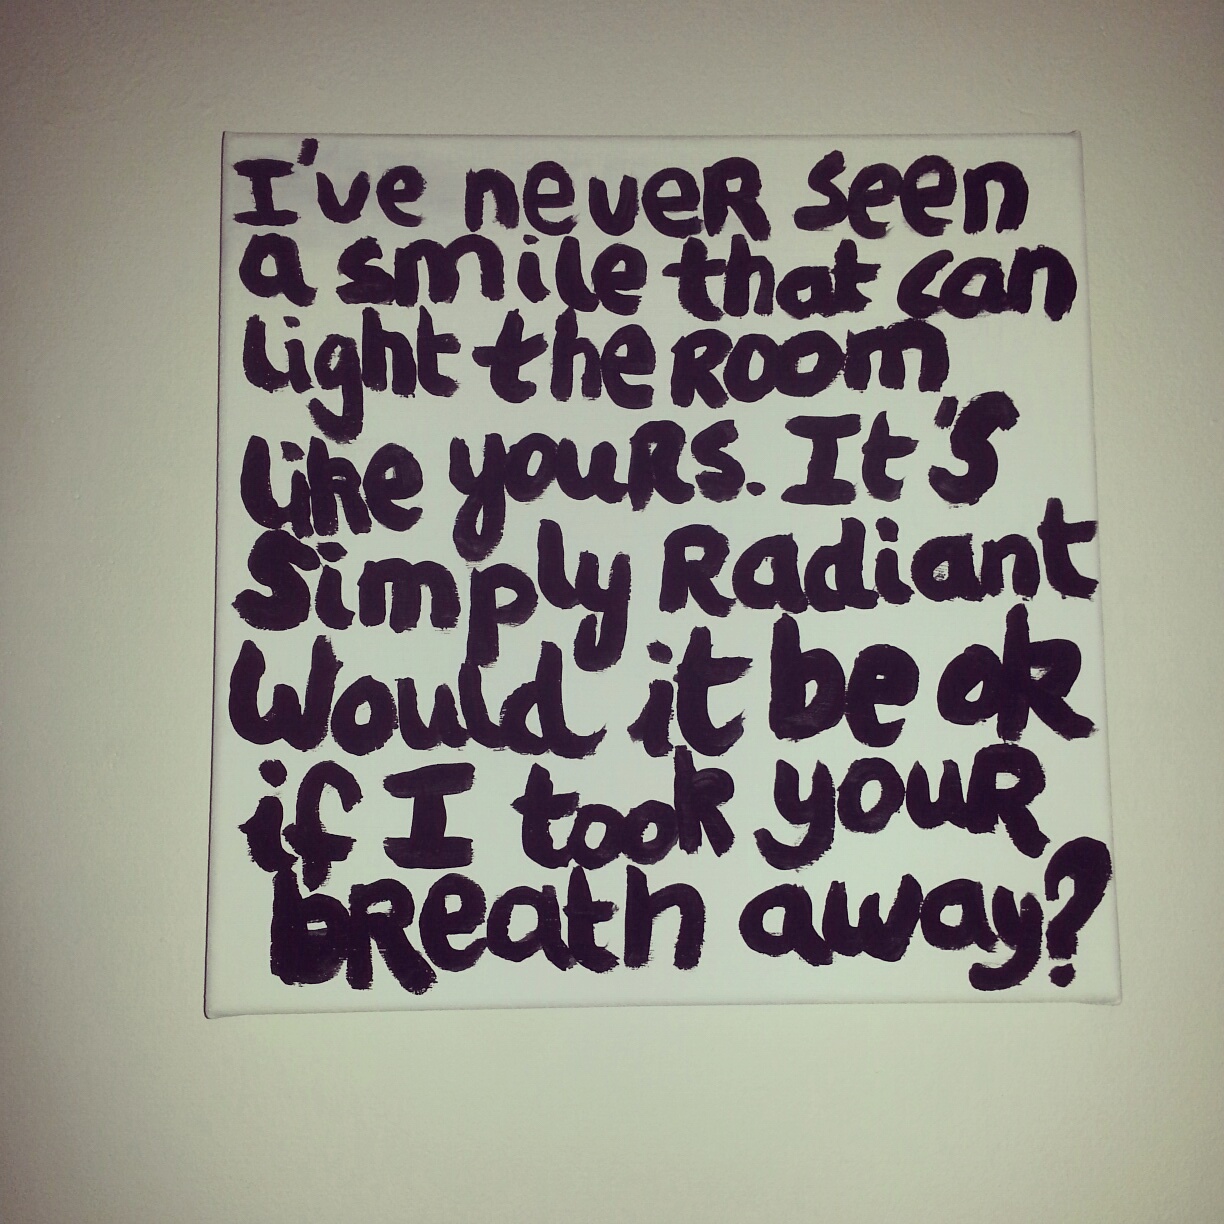 I've never seen
a smile that can
light the room
like yours. It's
Simply Radiant
Would it be ok
if I took your
breath away?